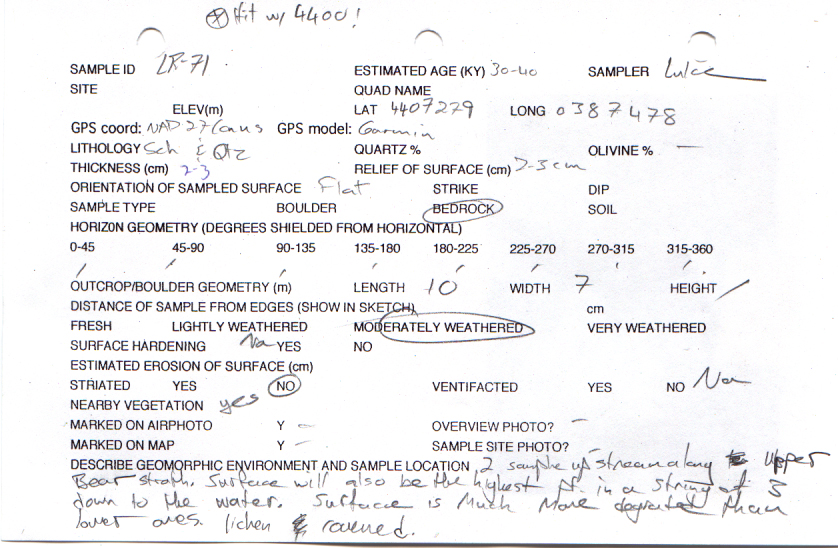 Hit w/ 4400!
SAMPLE ID LR-71 ESTIMATED AGE (KY) 30-40 SAMPLER
SITE QUAD NAME
ELEV(m) LAT 4407279 LONG 0387478
GPS coord: NAD 27 Conus GPS model: Garmin
LITHOLOGY Sch & Qtz QUARTZ % OLIVINE % —
THICKNESS (cm) 2-3 RELIEF OF SURFACE (cm) 2-3cm
ORIENTATION OF SAMPLED SURFACE Flat STRIKE DIP
SAMPLE TYPE BOULDER BEDROCK SOIL
HORIZON GEOMETRY (DEGREES SHIELDED FROM HORIZONTAL)
0-45 45-90 90-135 135-180 180-225 225-270 270-315 315-360
/ / / / / / / /
OUTCROP/BOULDER GEOMETRY (m) LENGTH 10 WIDTH 7 HEIGHT /
DISTANCE OF SAMPLE FROM EDGES (SHOW IN SKETCH) cm
FRESH LIGHTLY WEATHERED MODERATELY WEATHERED VERY WEATHERED
SURFACE HARDENING Na YES NO
ESTIMATED EROSION OF SURFACE (cm)
STRIATED YES NO VENTIFACTED YES NO Na
NEARBY VEGETATION yes
MARKED ON AIRPHOTO Y – OVERVIEW PHOTO? –
MARKED ON MAP Y – SAMPLE SITE PHOTO? –
DESCRIBE GEOMORPHIC ENVIRONMENT AND SAMPLE LOCATION 2 sample upstream along Upper
Bear strath. Surface will also be the highest pt. in a string of 3
down to the water. Surface is much more degraded than
lower ones. lichen covered.